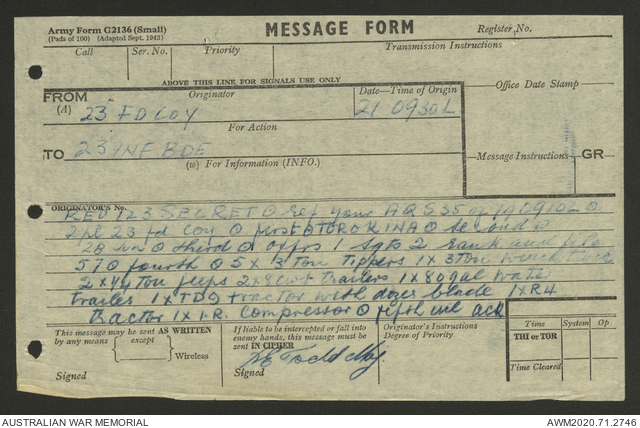 Army Form C2136 (Small)
(Pads of 100) (Adapted Sept. 1943)
MESSAGE FORM
Register No.
Call
Ser. No.
Priority
Transmission Instructions
ABOVE THIS LINE FOR SIGNALS USE ONLY
FROM
(A)
Originator
Date—Time of Origin
Office Date Stamp
23 FD COY
21 0930L
For Action
TO
23 INF BDE
(W) For Information (INFO.)
Message Instructions
GR
ORIGINATOR'S No.
REV 123 SECRET O ref your AQ 535 of 190910L O
2 pl 23 fd coy O first O TOROKINA O second O
28 Jun O third O offrs 1 sgts 2 rank and file
57 O fourth O 5 x 3 ton tippers 1 x 3 ton
2 x 1/4 ton jeeps 2 x 8 cwt trailers 1 x 80 gal water
trailer 1 x TD9 tractor with dozer blade 1 x R4
tractor 1 x I.R. compressor O fifth O ack
This message may be sent AS WRITTEN
by any means
except
Wireless
Signed
If liable to be intercepted or fall into
enemy hands, this message must be
sent IN CIPHER
Signed
Originator's Instructions
Degree of Priority
Time
System
Op
THI or TOR
Time Cleared
AUSTRALIAN WAR MEMORIAL
AWM2020.71.2746